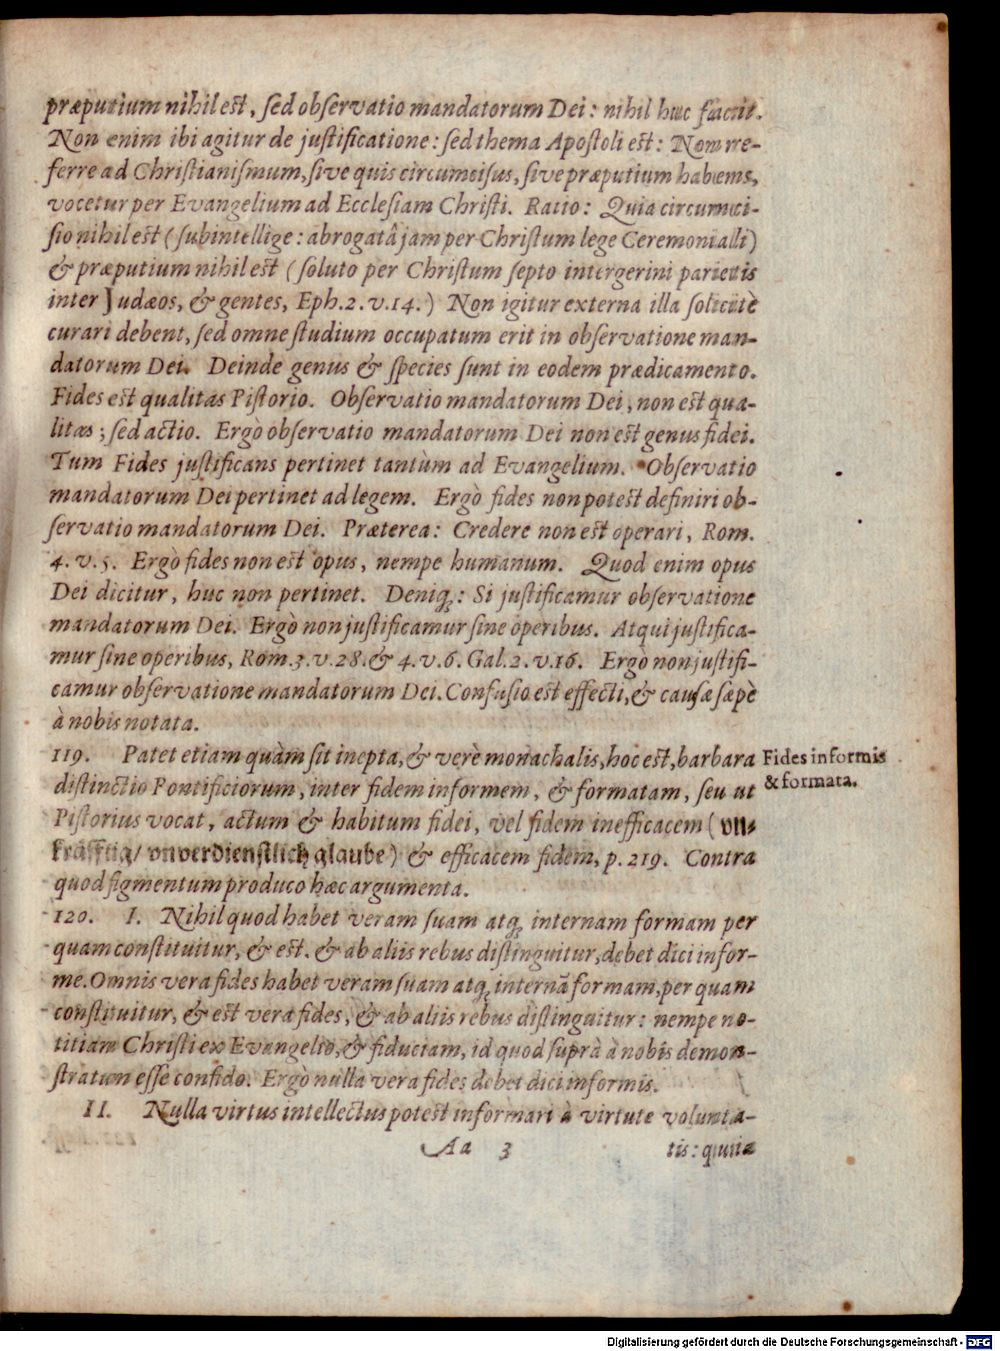 præputium nihil est, sed observatio mandatorum Dei: nihil huc facit.
Non enim ibi agitur de justificatione: sed thema Apostoli est: Non re-
ferre ad Christianismum, sive quis circumcisus, sive præputium habens,
vocetur per Evangelium ad Ecclesiam Christi. Ratio: Quia circumci-
sio nihil est (subintellige: abrogatâ jam per Christum lege Ceremoniali)
& præputium nihil est (soluto per Christum septo intergerini parietis
inter Judæos, & gentes, Eph. 2. v. 14.) Non igitur externa illa solicitè
curari debent, sed omne studium occupatum erit in observatione man-
datorum Dei. Deinde genus & species sunt in eodem prædicamento.
Fides est qualitas Pistorio. Observatio mandatorum Dei, non est qua-
litas; sed actio. Ergò observatio mandatorum Dei non est genus fidei.
Tum Fides justificans pertinet tantùm ad Evangelium. Observatio
mandatorum Dei pertinet ad legem. Ergò fides non potest definiri ob-
servatio mandatorum Dei. Præterea: Credere non est operari, Rom.
4. v. 5. Ergò fides non est opus, nempe humanum. Quod enim opus
Dei dicitur, huc non pertinet. Deniq;: Si justificamur observatione
mandatorum Dei. Ergò non justificamur sine operibus. Atqui justifica-
mur sine operibus, Rom. 3. v. 28. & 4. v. 6. Gal. 2. v. 16. Ergò non justifi-
camur observatione mandatorum Dei. Confusio est effecti, & causæ sæpè
à nobis notata.
119. Patet etiam quàm sit inepta, & verè monachalis, hoc est, barbara
distinctio Pontificiorum, inter fidem informem, & formatam, seu ut
Pistorius vocat, actum & habitum fidei, vel fidem inefficacem (vn-
kräfftig/ vnverdienstlich glaube) & efficacem fidem, p. 219. Contra
quod figmentum produco hæc argumenta.
Fides informis
& formata.
120. I. Nihil quod habet veram suam atq; internam formam per
quam constituitur, & est. & ab aliis rebus distinguitur, debet dici infor-
me. Omnis vera fides habet veram suam atq; internã formam, per quam
constituitur, & est vera fides, & ab aliis rebus distinguitur: nempe no-
titiam Christi ex Evangelio, & fiduciam, id quod suprà à nobis demon-
stratum esse confido. Ergò nulla vera fides debet dici informis.
II. Nulla virtus intellectus potest informari à virtute volunta-
Aa 3 tis: quia
Digitalisierung gefördert durch die Deutsche Forschungsgemeinschaft - DFG